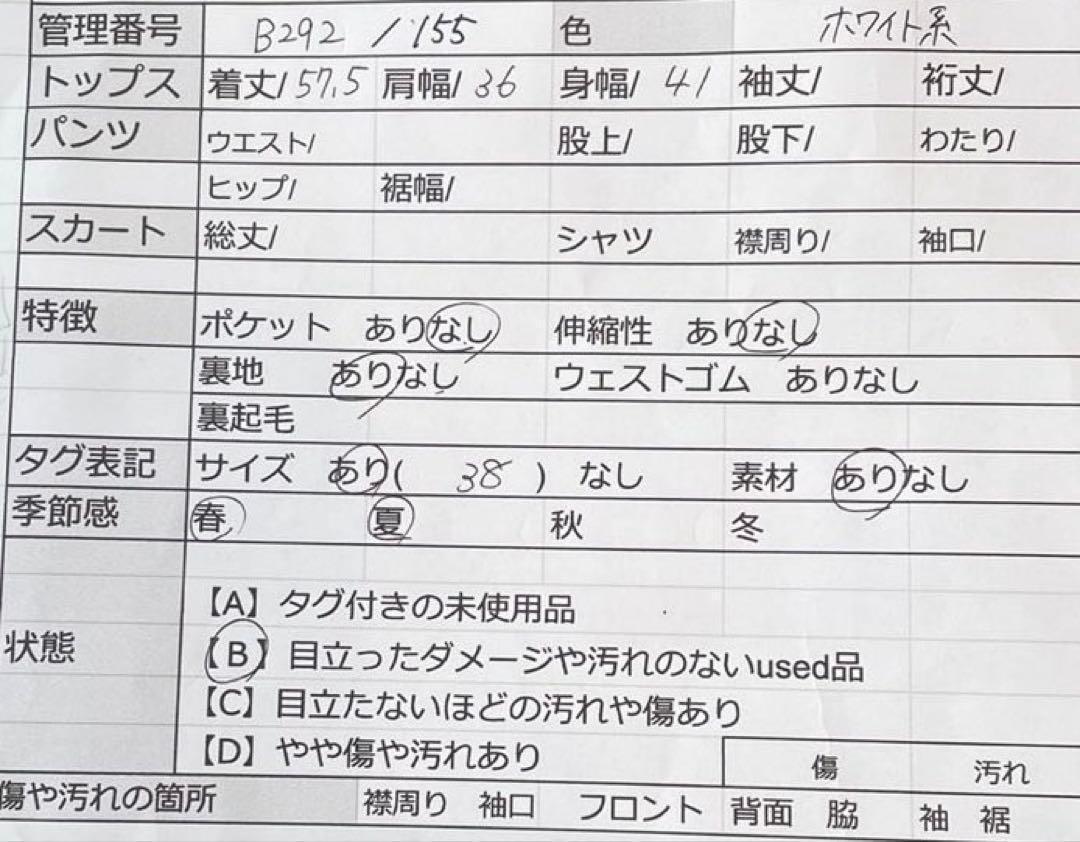 管理番号 B292 /155 色 ホワイト系
トップス 着丈/57.5 肩幅/36 身幅/41 袖丈/ 裄丈/
パンツ ウエスト/ 股上/ 股下/ わたり/
ヒップ/ 裾幅/
スカート 総丈/ シャツ 襟周り/ 袖口/
特徴 ポケット ありなし 伸縮性 ありなし
裏地 ありなし ウェストゴム ありなし
裏起毛
タグ表記 サイズ あり( 38 ) なし 素材 ありなし
季節感 春 夏 秋 冬
【A】タグ付きの未使用品
状態 【B】目立ったダメージや汚れのないused品
【C】目立たないほどの汚れや傷あり
【D】やや傷や汚れあり 傷 汚れ
傷や汚れの箇所 襟周り 袖口 フロント 背面 脇 袖 裾